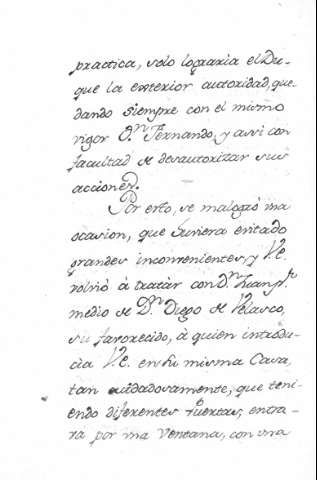 practica, solo lograria el Du-
que la exterior autoridad, que-
dando siempre con el mismo
vigor D.n Fernando, y assi con
facultad de desautorizar sus
acciones.
Por esto, se malogró vna
ocasion, que huviera evitado
grandes inconvenientes, y Ve.
volvió á tratar con D.n Juan p.r
medio de D.n Diego de Velasco,
su favorecido, á quien introdu-
cia Ve. en su misma Casa,
tan cuidadosamente, que teni-
endo diferentes Puertas, entra-
va por vna Ventana, con vna